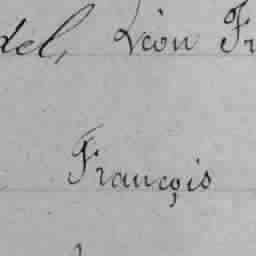 del, Léon Fr
François